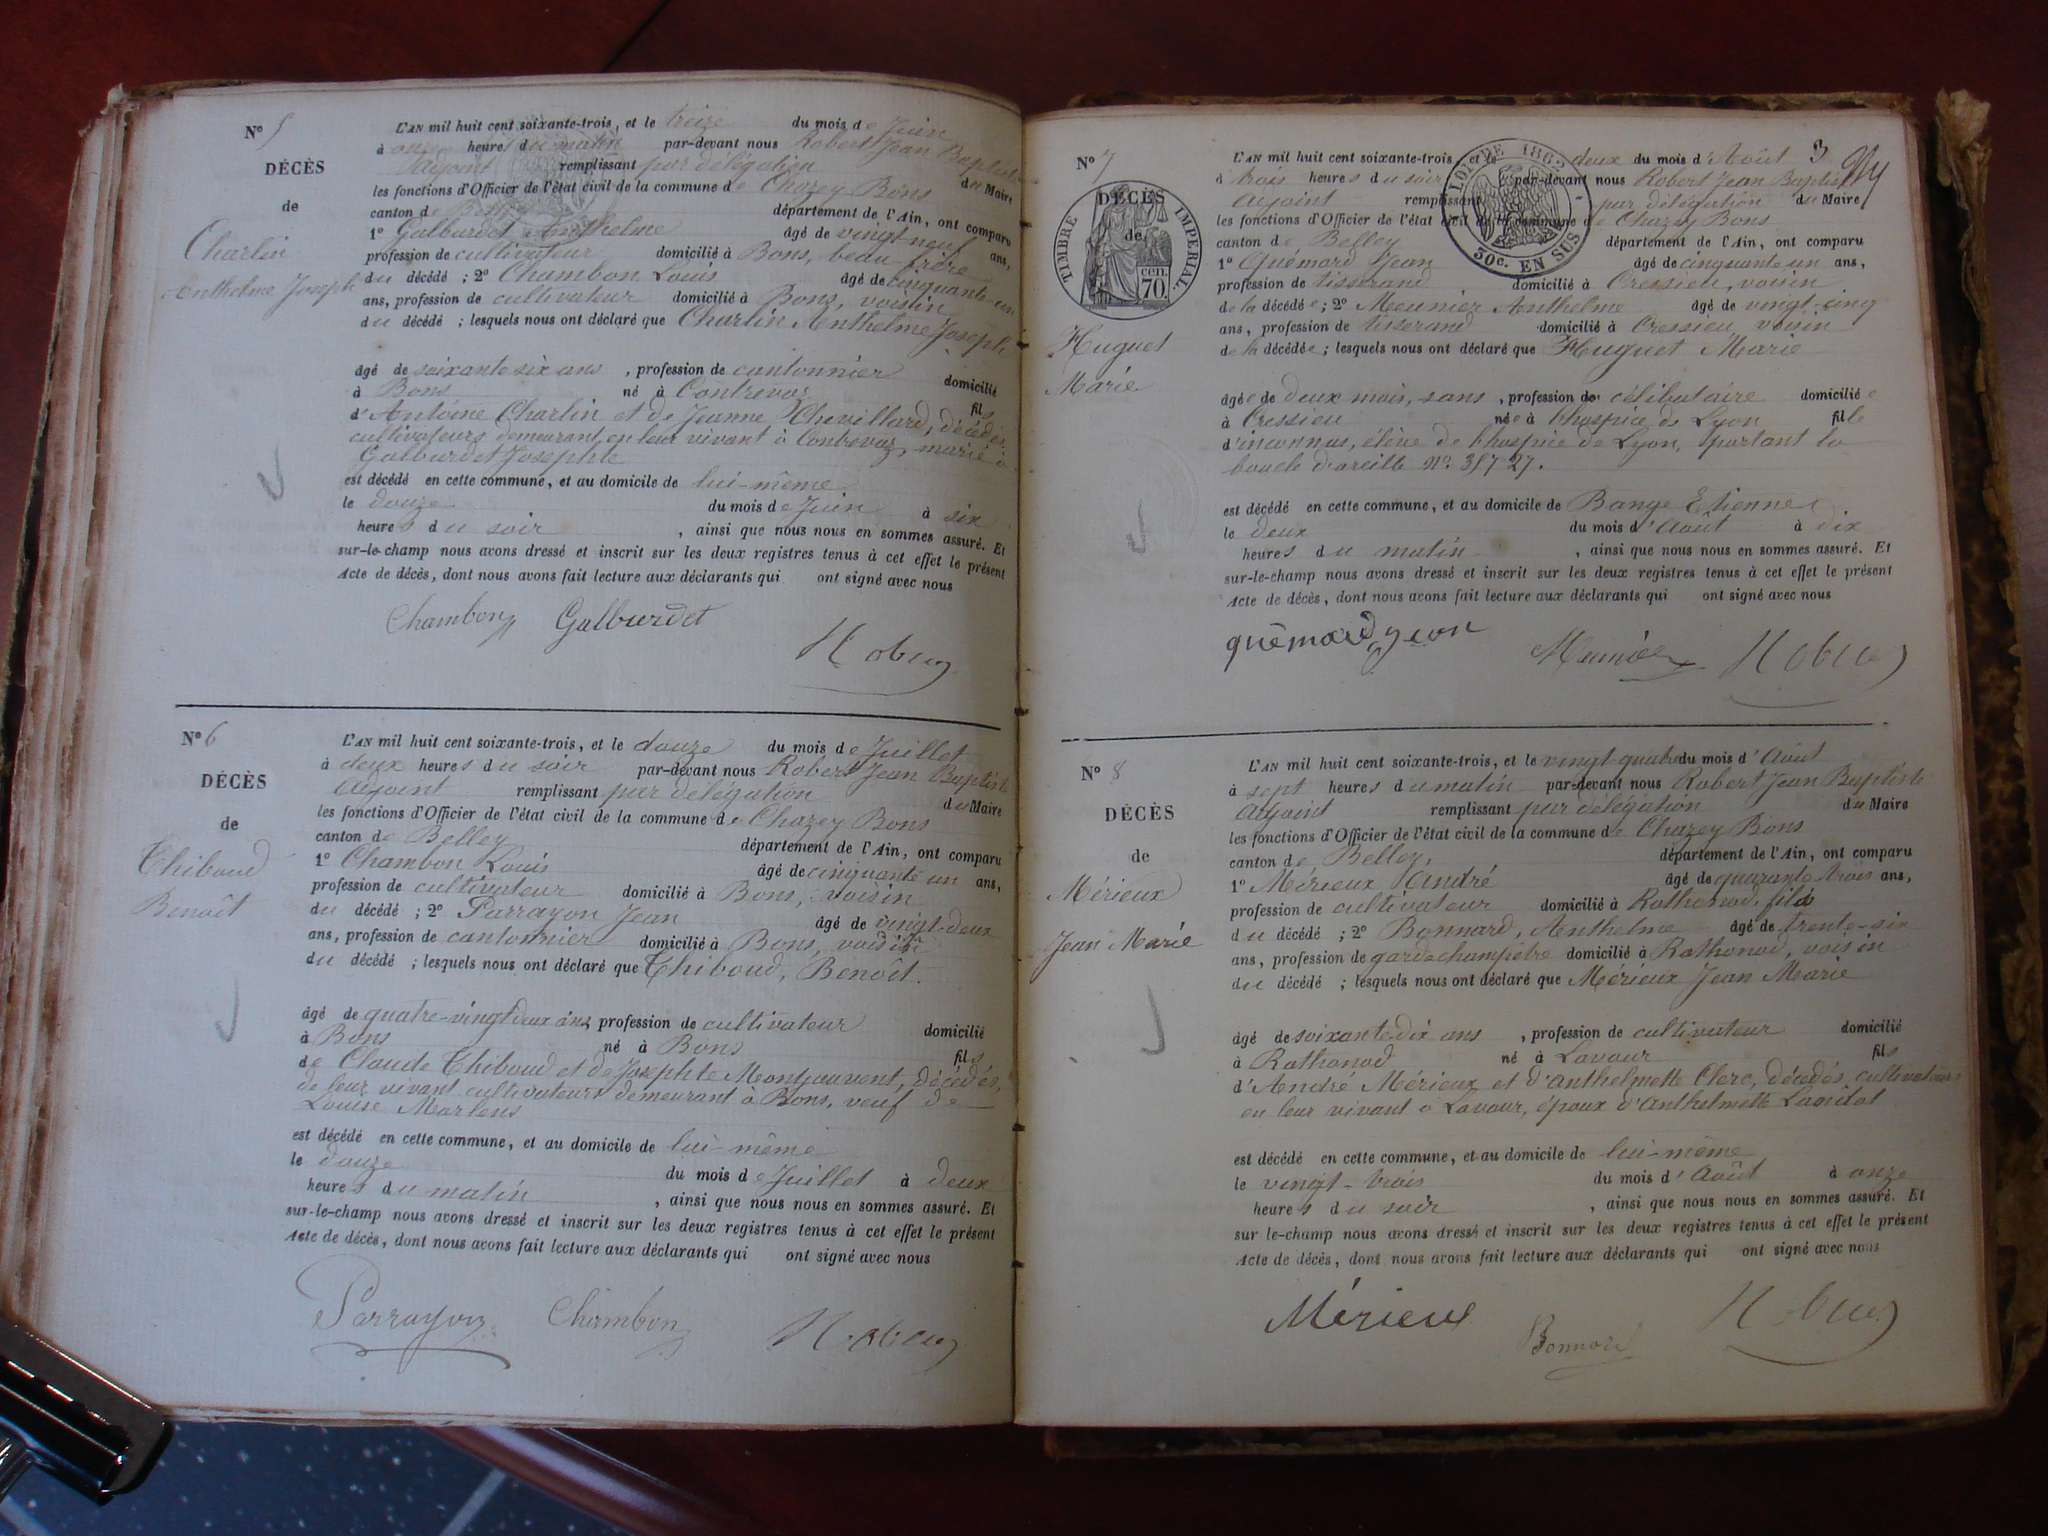 N° 5
DÉCÈS
de
Charlin
Anthelme Joseph
L'AN mil huit cent soixante-trois, et le treize du mois de Juin
à onze heures du matin par-devant nous Robert Jean Baptiste
Adjoint remplissant par délégation du Maire
les fonctions d'Officier de l'état civil de la commune de Chazey Bons
canton de Belley département de l'Ain, ont comparu
1° Galburdet Anthelme âgé de vingt neuf ans,
profession de cultivateur domicilié à Bons, beau frère
du décédé ; 2° Chambon Louis âgé de cinquante un
ans, profession de cultivateur domicilié à Bons, voisin
du décédé ; lesquels nous ont déclaré que Charlin Anthelme Joseph
âgé de soixante six ans , profession de cantonnier domicilié
à Bons né à Contrevoz fils
d'Antoine Charlin et de Jeanne Chevillard, décédés,
cultivateurs demeurant en leur vivant à Contrevoz, marié à
Galburdet Josephte
est décédé en cette commune, et au domicile de lui-même
le douze du mois de Juin à six
heures du soir , ainsi que nous nous en sommes assuré. Et
sur-le-champ nous avons dressé et inscrit sur les deux registres tenus à cet effet le présent
Acte de décès, dont nous avons fait lecture aux déclarants qui ont signé avec nous
Chambon Galburdet
N° 6
DÉCÈS
de
Thiboud
Benoît
L'AN mil huit cent soixante-trois, et le douze du mois de Juillet
à deux heures du soir par-devant nous Robert Jean Baptiste
Adjoint remplissant par délégation du Maire
les fonctions d'Officier de l'état civil de la commune de Chazey Bons
canton de Belley département de l'Ain, ont comparu
1° Chambon Louis âgé de cinquante un ans,
profession de cultivateur domicilié à Bons, voisin
du décédé ; 2° Parrayon Jean âgé de vingt-deux
ans, profession de cantonnier domicilié à Bons, voisin
du décédé ; lesquels nous ont déclaré que Thiboud, Benoît.
âgé de quatre-vingt deux ans, profession de cultivateur domicilié
à Bons né à Bons fils
de Claude Thiboud et de Josephte Montjouvent, décédés,
de leur vivant cultivateurs demeurant à Bons, veuf de
Louise Martens
est décédé en cette commune, et au domicile de lui-même
le douze du mois de Juillet à deux
heures du matin , ainsi que nous nous en sommes assuré. Et
sur-le-champ nous avons dressé et inscrit sur les deux registres tenus à cet effet le présent
Acte de décès, dont nous avons fait lecture aux déclarants qui ont signé avec nous
Parrayon Chambon
3
N° 7
DÉCÈS
de
TIMBRE IMPERIAL.
cen.
70.
LOI DE 1862
50c. EN SUS
Huguet
Marie
L'AN mil huit cent soixante-trois, et le deux du mois d'Août
à trois heures du soir par-devant nous Robert Jean Baptiste
Adjoint remplissant par délégation du Maire
les fonctions d'Officier de l'état civil de la commune de Chazey Bons
canton de Belley département de l'Ain, ont comparu
1° Quémard Jean âgé de cinquante un ans,
profession de tisserand domicilié à Cressieu, voisin
de la décédée ; 2° Meunier Anthelme âgé de vingt-cinq
ans, profession de tisserand domicilié à Cressieu, voisin
de la décédée ; lesquels nous ont déclaré que Huguet Marie
âgée de deux mois, sans , profession de célibataire domiciliée
à Cressieu née à l'hospice de Lyon fille
d'inconnus, élève de l'hospice de Lyon, portant la
boucle d'oreille N°. 35727.
est décédé en cette commune, et au domicile de Bange Etienne
le deux du mois d'Août à dix
heures du matin , ainsi que nous nous en sommes assuré. Et
sur-le-champ nous avons dressé et inscrit sur les deux registres tenus à cet effet le présent
Acte de décès, dont nous avons fait lecture aux déclarants qui ont signé avec nous
quémard jean Meunier
N° 8
DÉCÈS
de
Mérieux
Jean Marie
L'AN mil huit cent soixante-trois, et le vingt-quatre du mois d'Août
à sept heures du matin par-devant nous Robert Jean Baptiste
Adjoint remplissant par délégation du Maire
les fonctions d'Officier de l'état civil de la commune de Chazey Bons
canton de Belley, département de l'Ain, ont comparu
1° Mérieux André âgé de quarante trois ans,
profession de cultivateur domicilié à Rothonod, fils
du décédé ; 2° Bonnard, Anthelme âgé de trente-six
ans, profession de garde champêtre domicilié à Rothonod, voisin
du décédé ; lesquels nous ont déclaré que Mérieux Jean Marie
âgé de soixante dix ans , profession de cultivateur domicilié
à Rothonod né à Lavour fils
d'André Mérieux et d'Anthelmette Clerc, décédés, cultivateurs
en leur vivant à Lavour, époux d'Anthelmette
est décédé en cette commune, et au domicile de lui-même
le vingt-trois du mois d'Août à onze
heures du soir , ainsi que nous nous en sommes assuré. Et
sur-le-champ nous avons dressé et inscrit sur les deux registres tenus à cet effet le présent
Acte de décès, dont nous avons fait lecture aux déclarants qui ont signé avec nous
Mérieux Bonnard